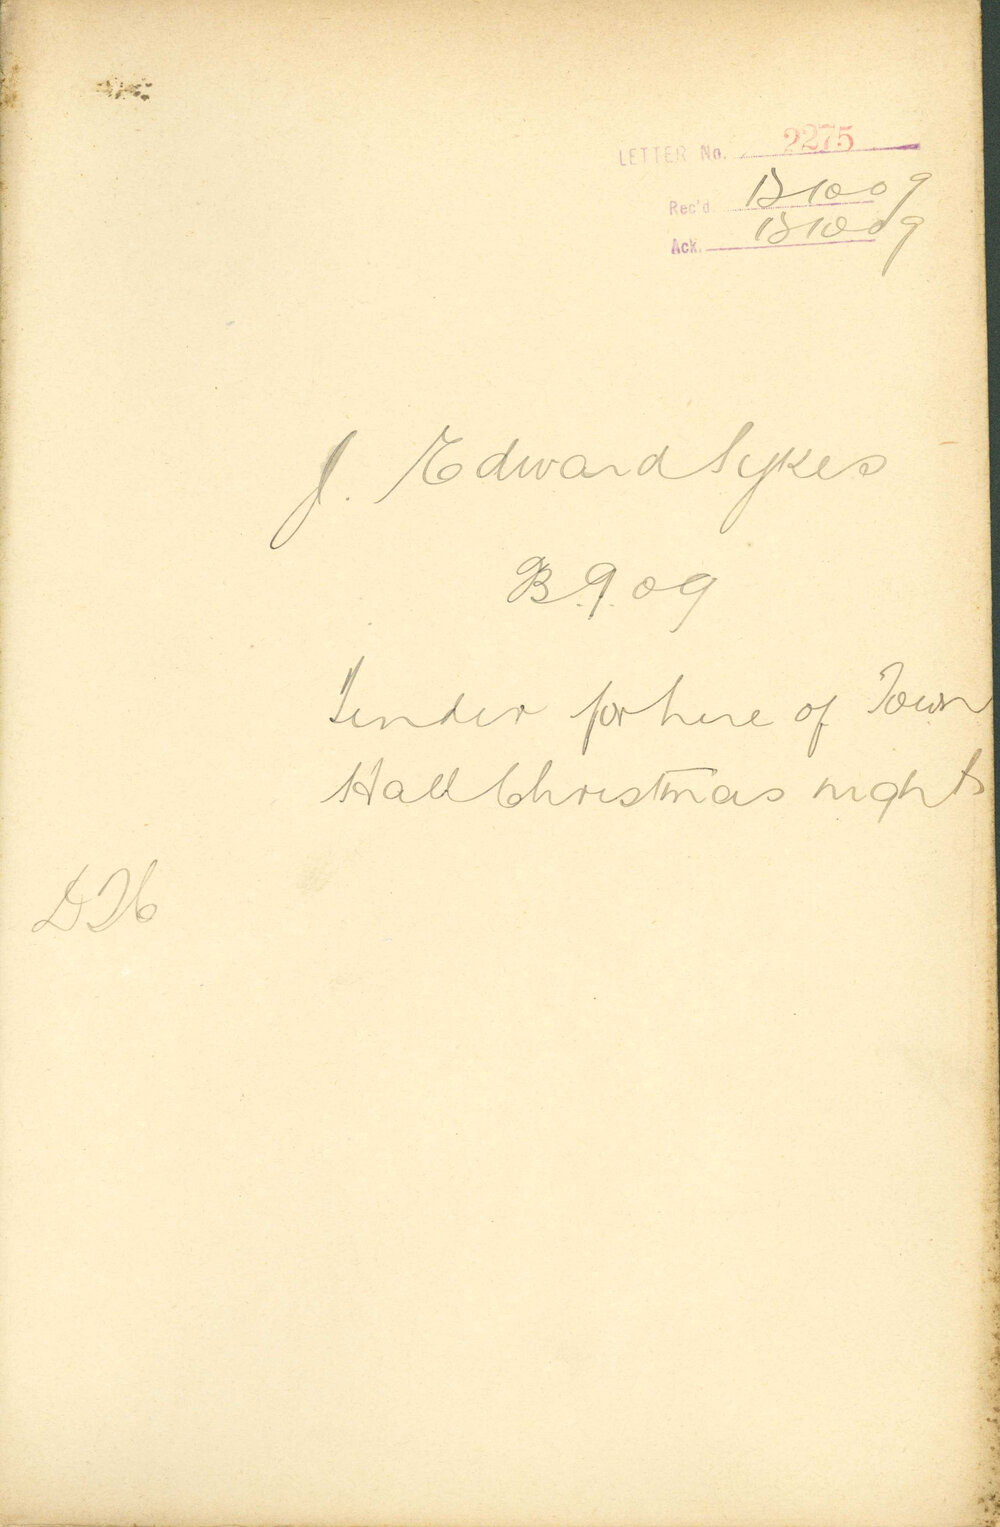 LETTER No. 2275
Rec'd
Ack.
J. Edward Sykes
B.9.09
Tender for hire of Town
Hall Christmas nights